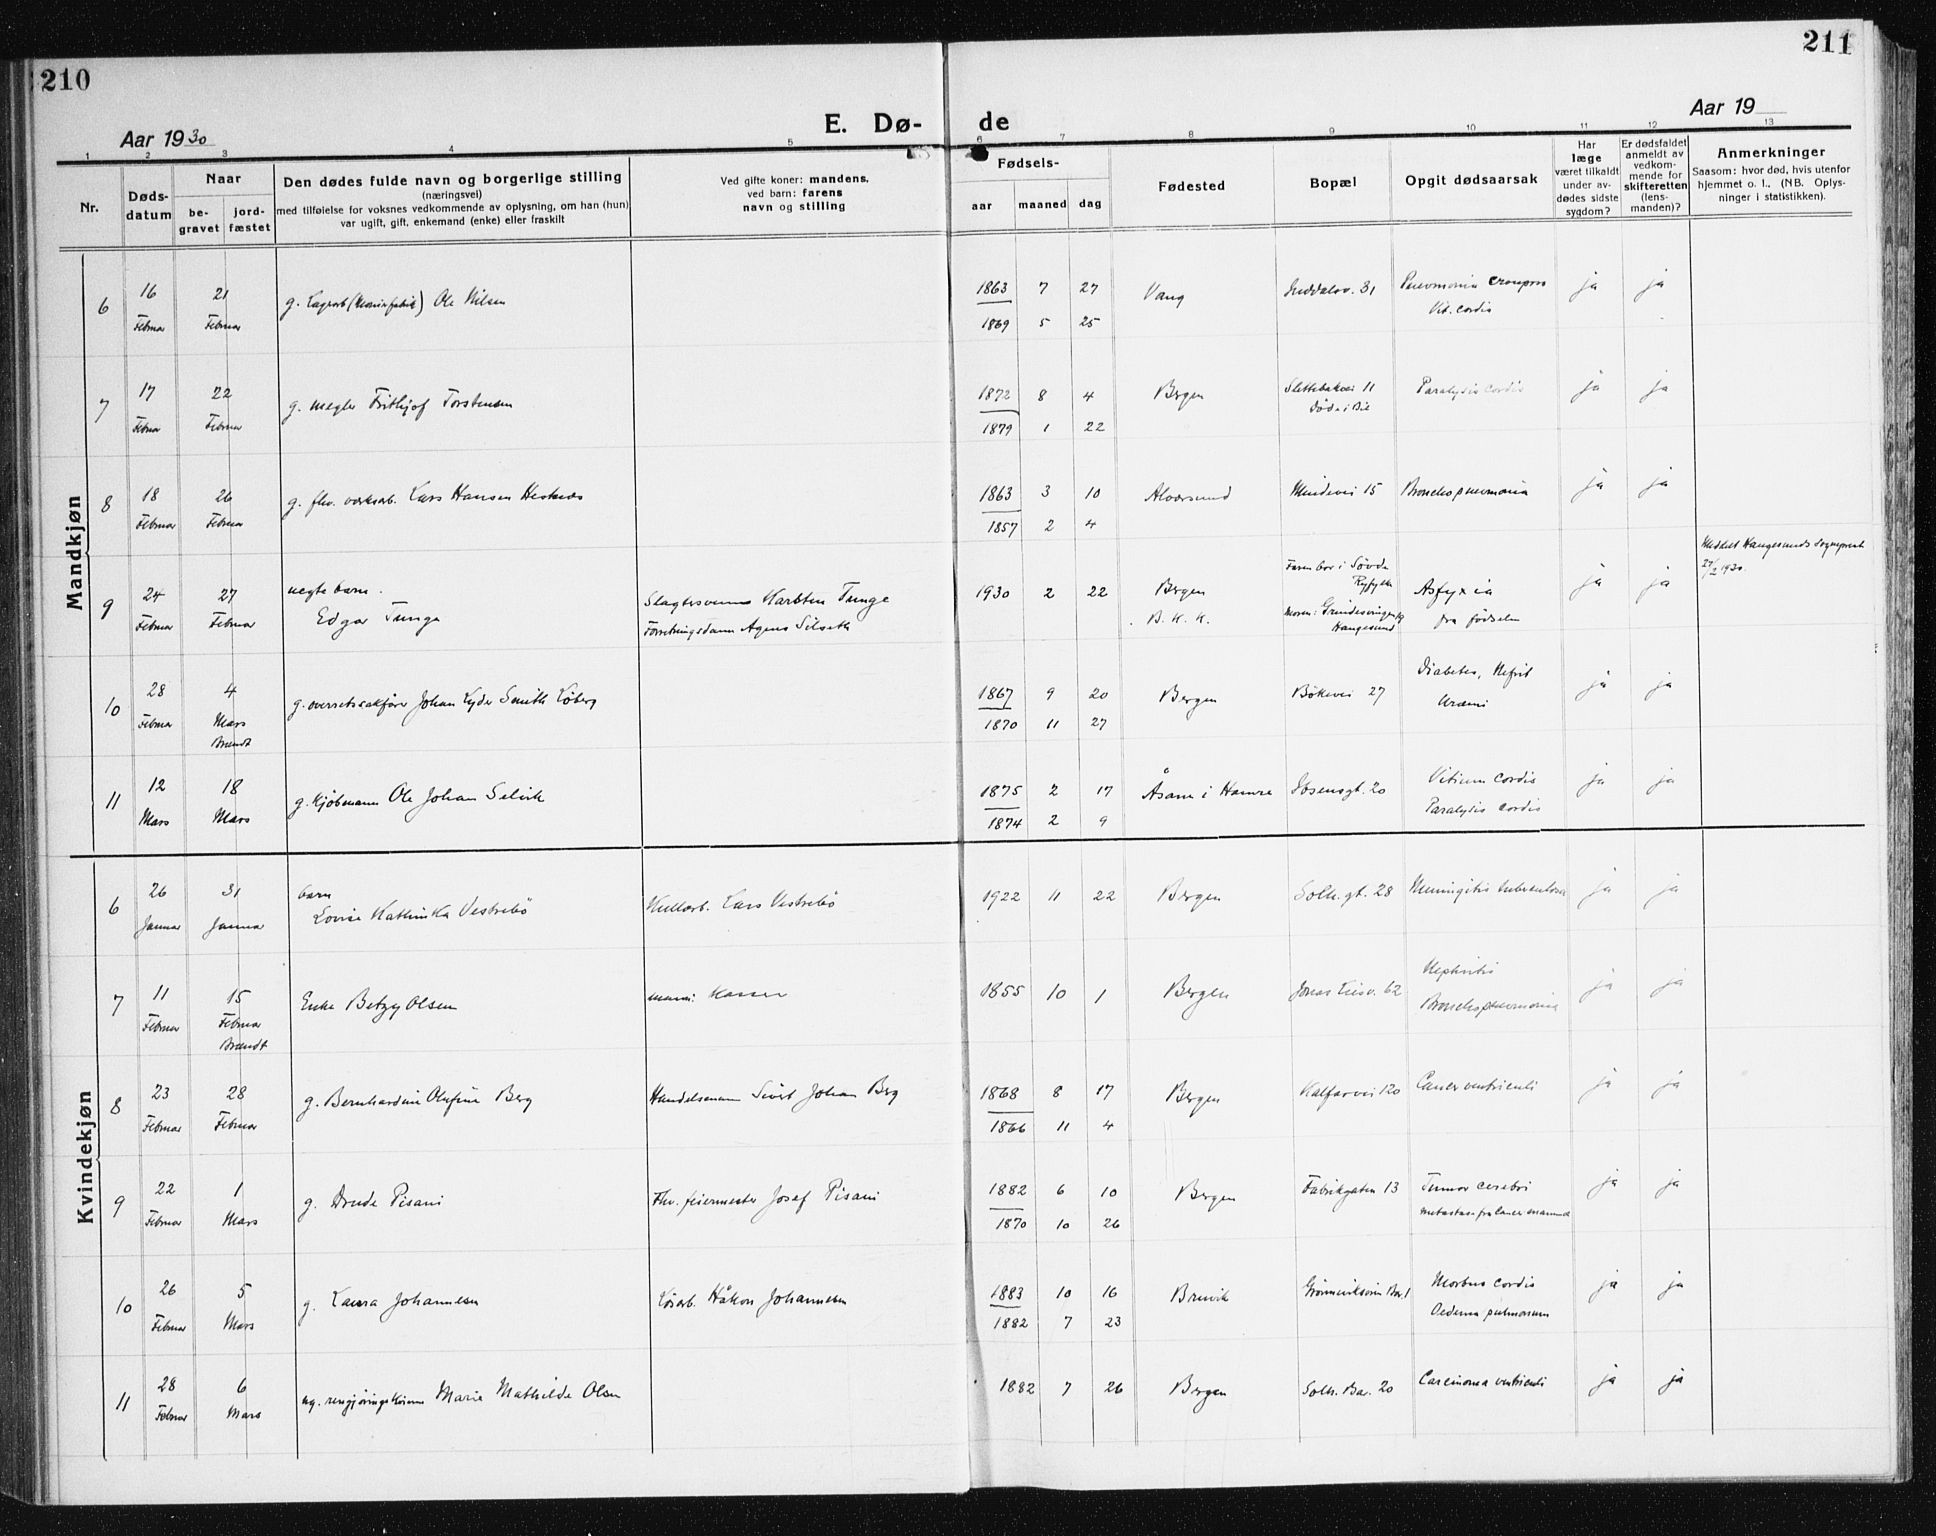 210
211
Aar 1930
E. Dø-
de
Aar 19
1 2 3 4 5 6 7 8 9 10 11 12 13
Nr.
Døds-
datum
Naar
be-
gravet
jord-
fæstet
Den dødes fulde navn og borgerlige stilling
(næringsvei)
med tilføielse for voksnes vedkommende av oplysning, om han (hun)
var ugift, gift, enkemand (enke) eller fraskilt
Ved gifte koner: mandens,
ved barn: farens
navn og stilling
Fødsels-
aar maaned dag
Fødested
Bopæl
Opgit dødsaarsak
Har
læge
været tilkaldt
under av-
dødes sidste
sygdom?
Er dødsfaldet
anmeldt av
vedkom-
mende for
skifteretten
(lens-
manden)?
Anmerkninger
Saasom: hvor død, hvis utenfor
hjemmet o. l., (NB. Oplys-
ninger i statistikken).
Mandkjøn
6 16 21 g. Ole Nilsen 1863 7 27 Vang 31 Pneumonia crouposa ja ja
Februar Februar 1869 5 25 Vit. cordis
7 17 22 g. megler Frithjof Torstensen 1872 8 4 Bergen 11 Paralysis cordis ja ja
Februar Februar 1879 1 22
8 18 26 g. fhv. verksarb. Lars Hansen 1863 3 10 Alversund Mindevei 15 Bronchopneumonia ja ja
Februar Februar 1857 2 4
9 24 27 uegte barn. 1930 2 22 Bergen Faren bor i Søvde Asfyxia ja ja
Februar Februar Edgar Tunge Slagtersvenn Karsten Tunge B. K. K. Ryfylke fra fødselen
Haugesund
10 28 4 g. overretssakfører Johan Lyder Smith Løberg 1867 9 20 Bergen Bøkevei 27 Diabetes, Nefrit ja ja
Februar Mars 1870 11 27 Uræmi
Brændt
11 12 18 g. kjøbmann Ole Johan Selvik 1875 2 17 Åsane i Hamre Ibsensgt. 20 Vitium cordis ja ja
Mars Mars 1874 2 9 Paralysis cordis
Kvindekjøn
6 26 31 barn Lars Vestrebø 1922 11 22 Bergen Solh. gt. 28 Meningitis tuberculosa ja ja
Januar Januar Lovise Kathinka Vestrebø
7 11 15 Enke Betzy Olsen 1855 10 1 Bergen Jonas Liesv. 62 Nephritis ja ja
Februar Februar Bronchopneumonia
Brændt
8 23 28 g. Bernhardine Olufine Berg Handelsmann Sivert Johan Berg 1868 8 17 Bergen Kalfarvei 120 Cancer ventriculi ja ja
Februar Februar 1866 11 4
9 22 1 g. Drude Pisani Fhv. feiermester Josef Pisani 1882 6 10 Bergen Fabrikgaten 13 Tumor cerebri ja ja
Februar Mars 1870 10 26 metastase fra cancer mammae
10 26 5 g. Laura Johannesen Løsarb. Håkon Johannesen 1883 10 16 Brevik Morbus cordis ja ja
Februar Mars 1882 7 23 Oedema pulmonum
11 28 6 ug. rengjøringskone Marie Mathilde Olsen 1882 7 26 Bergen Solh. 20 Carcinoma ventriculi ja ja
Februar Mars